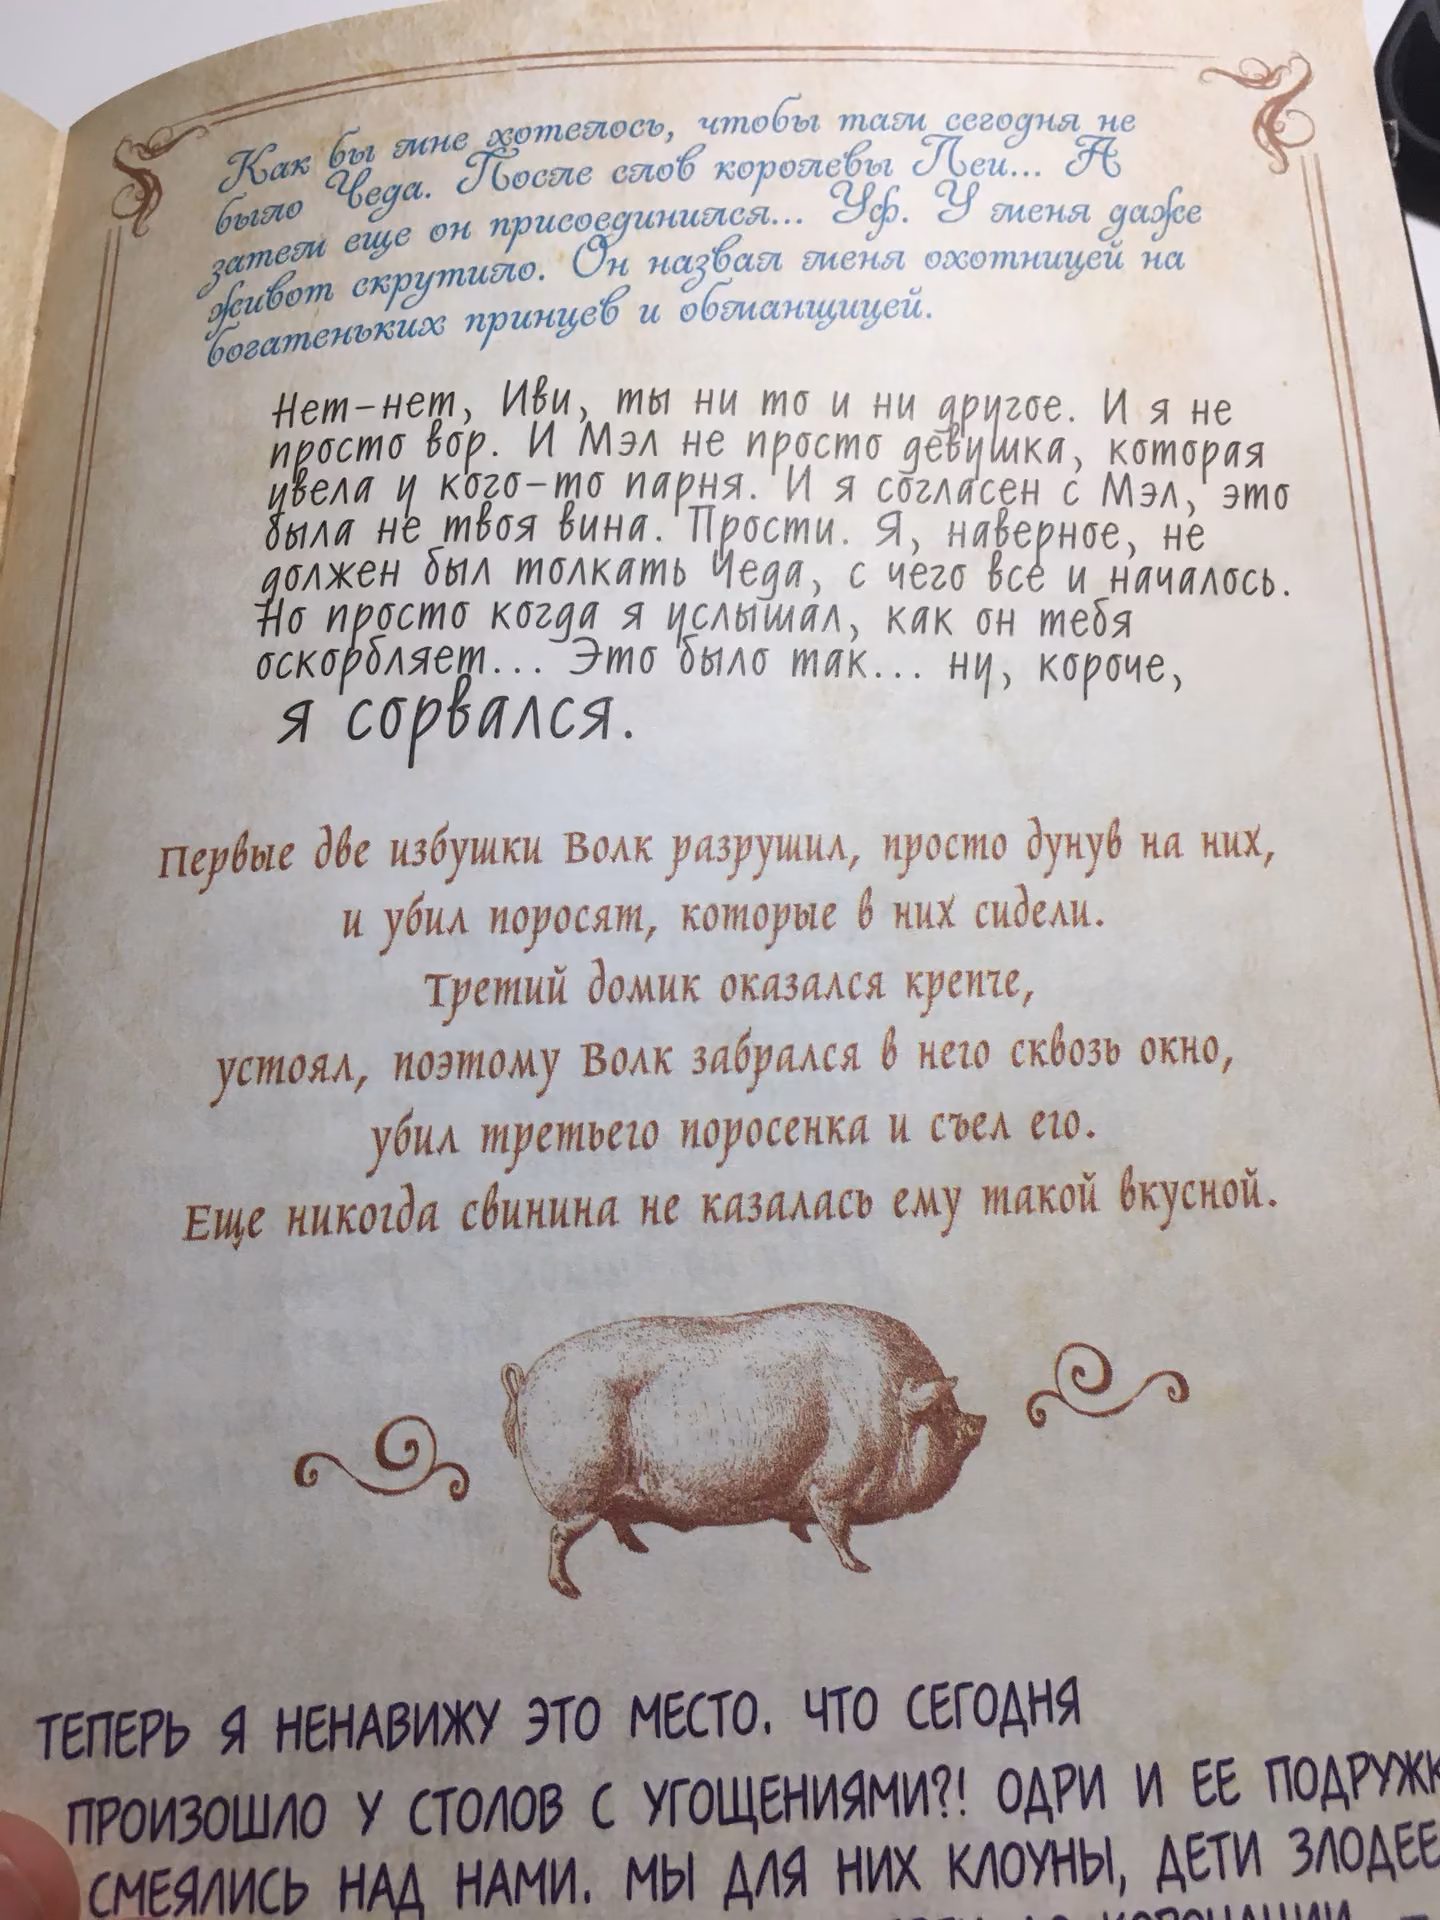 Как бы мне хотелось, чтобы там сегодня не
было Чеда. После слов королевы Леи... А
затем еще он присоединился... Уф. У меня даже
живот скрутило. Он назвал меня охотницей на
богатеньких принцев и обманщицей.
Нет-нет, Иви, ты ни то и ни другое. И я не
просто вор. И Мэл не просто девушка, которая
увела у кого-то парня. И я согласен с Мэл, это
была не твоя вина. Прости. Я, наверное, не
должен был толкать Чеда, с чего все и началось.
Но просто когда я услышал, как он тебя
оскорбляет... Это было так... ну, короче,
я сорвался.
Первые две избушки Волк разрушил, просто дунув на них,
и убил поросят, которые в них сидели.
Третий домик оказался крепче,
устоял, поэтому Волк забрался в него сквозь окно,
убил третьего поросенка и съел его.
Еще никогда свинина не казалась ему такой вкусной.
ТЕПЕРЬ Я НЕНАВИЖУ ЭТО МЕСТО. ЧТО СЕГОДНЯ
ПРОИЗОШЛО У СТОЛОВ С УГОЩЕНИЯМИ?! ОДРИ И ЕЕ ПОДРУЖК
СМЕЯЛИСЬ НАД НАМИ. МЫ ДЛЯ НИХ КЛОУНЫ, ДЕТИ ЗЛОДЕЕ